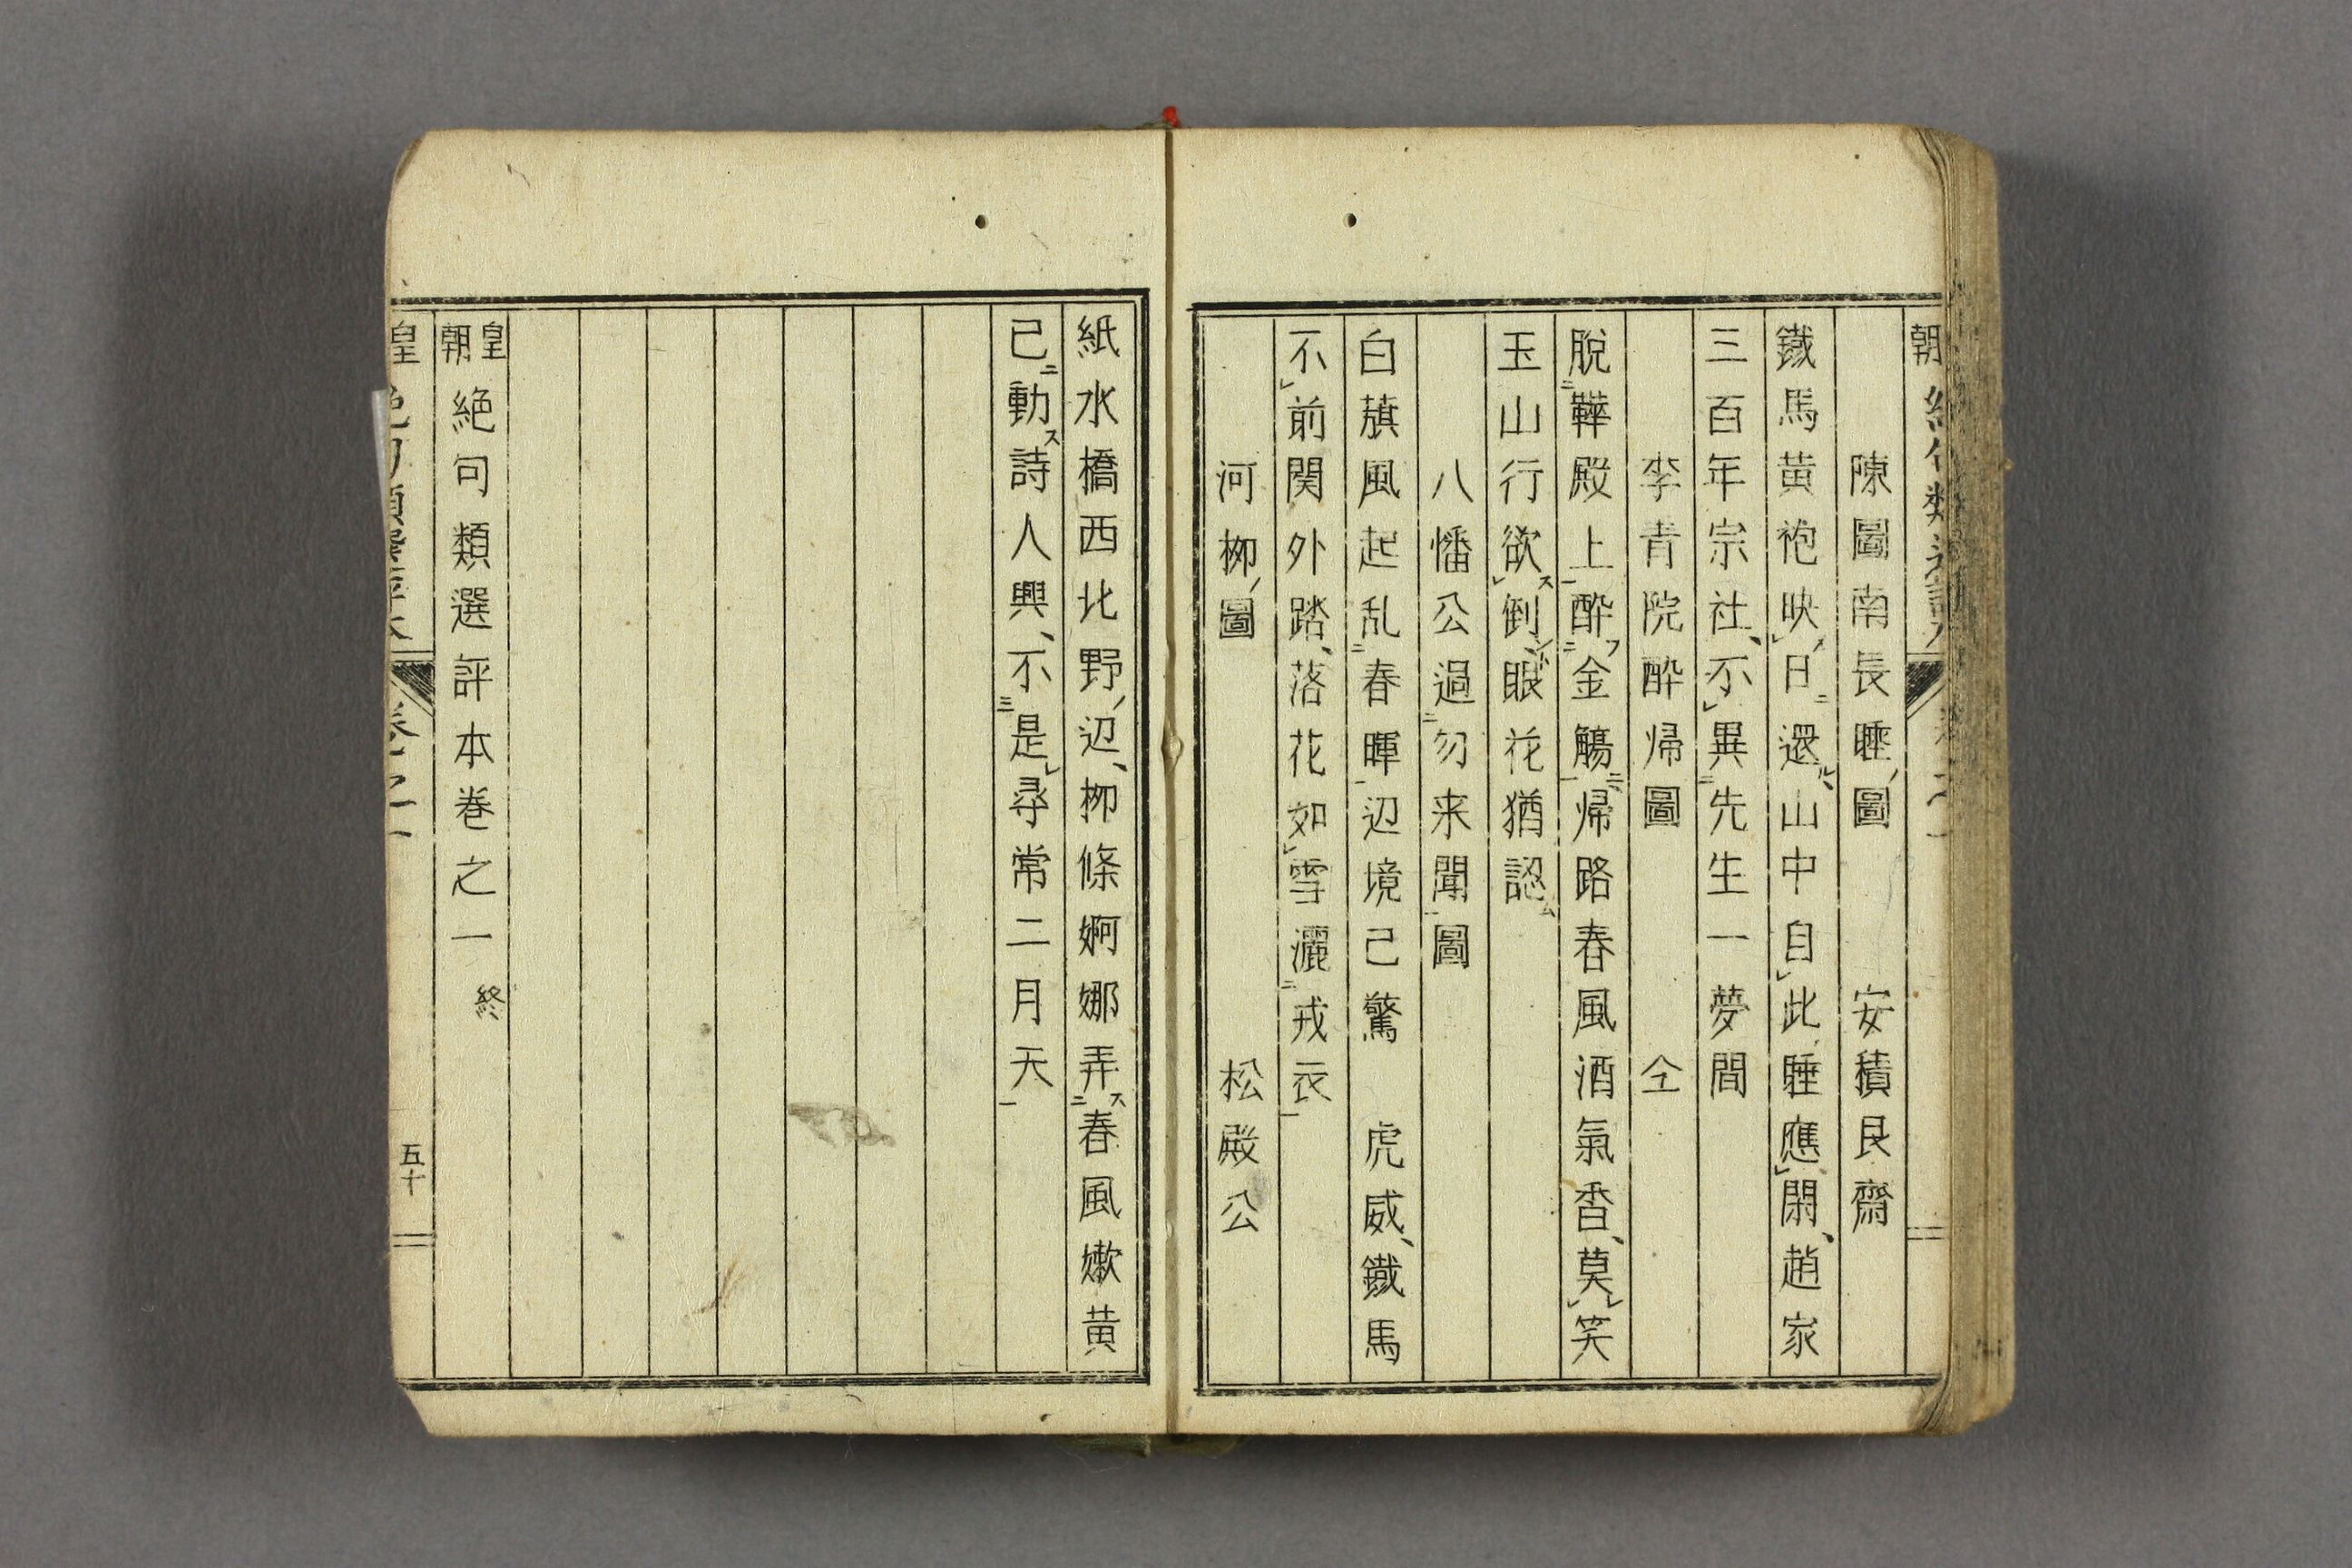 陳圖南長睡圖　安積艮齋
鐵馬黃袍映日還山中自此睡應閑趙家
三百年宗社不異先生一夢間
李青院酔帰圖　仝
脫鞾殿上酔金觴帰路春風酒氣香莫笑
玉山行欲倒眼花猶認
八幡公過勿来聞圖
白旗風起乱春暉辺境己驚　虎威鐵馬
不前関外踏落花如雪灑戎衣
河栁圖　松殿公
紙水橋西北野辺栁條婀娜弄春風嫩黄
已動詩人興不是尋常二月天
皇朝絶句類選評本巻之一終
五十